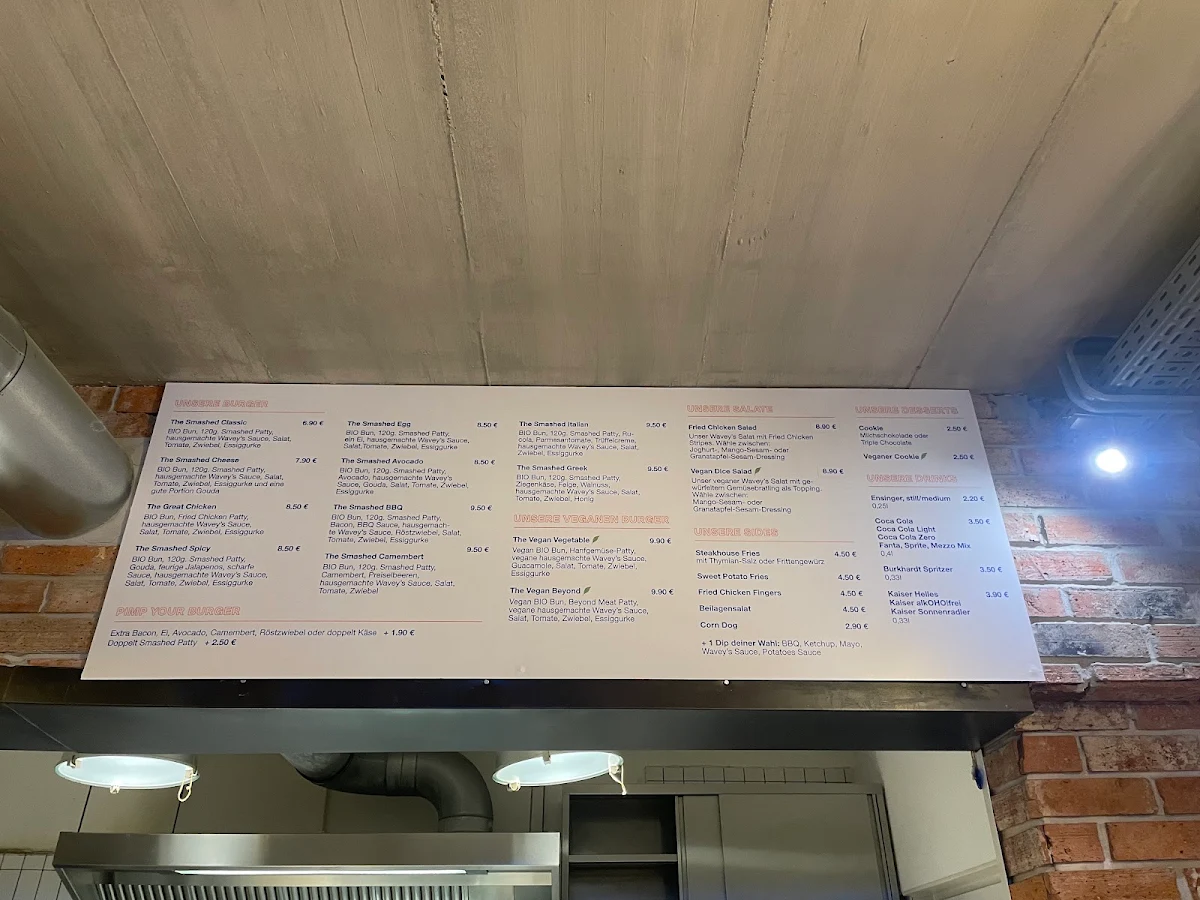 UNSERE BURGER
The Smashed Classic 6.90 €
BIO Bun, 120g. Smashed Patty,
hausgemachte Wavey's Sauce, Salat,
Tomate, Zwiebel, Essiggurke
The Smashed Cheese 7.90 €
BIO Bun, 120g. Smashed Patty,
hausgemachte Wavey's Sauce, Salat,
Tomate, Zwiebel, Essiggurke und eine
gute Portion Gouda
The Great Chicken 8.50 €
BIO Bun, Fried Chicken Patty,
hausgemachte Wavey's Sauce,
Salat, Tomate, Zwiebel, Essiggurke
The Smashed Spicy 8.50 €
BIO Bun, 120g. Smashed Patty,
Gouda, feurige Jalapenos, scharfe
Sauce, hausgemachte Wavey's Sauce,
Salat, Tomate, Zwiebel, Essiggurke
The Smashed Egg 8.50 €
BIO Bun, 120g. Smashed Patty,
ein Ei, hausgemachte Wavey's Sauce,
Salat, Tomate, Zwiebel, Essiggurke
The Smashed Avocado 8.50 €
BIO Bun, 120g. Smashed Patty,
Avocado, hausgemachte Wavey's
Sauce, Gouda, Salat, Tomate, Zwiebel,
Essiggurke
The Smashed BBQ 9.50 €
BIO Bun, 120g. Smashed Patty,
Bacon, BBQ Sauce, hausgemach-
te Wavey's Sauce, Röstzwiebel, Salat,
Tomate, Zwiebel, Essiggurke
The Smashed Camembert 9.50 €
BIO Bun, 120g. Smashed Patty,
Camembert, Preiselbeeren,
hausgemachte Wavey's Sauce, Salat,
Tomate, Zwiebel
PIMP YOUR BURGER
Extra Bacon, Ei, Avocado, Camembert, Röstzwiebel oder doppelt Käse + 1.90 €
Doppelt Smashed Patty + 2.50 €
The Smashed Italian 9.50 €
BIO Bun, 120g. Smashed Patty, Ru-
cola, Parmesantomate, Trüffelcreme,
hausgemachte Wavey's Sauce, Salat,
Tomate, Zwiebel, Essiggurke
The Smashed Greek 9.50 €
BIO Bun, 120g. Smashed Patty,
Ziegenkäse, Feige, Walnuss,
hausgemachte Wavey's Sauce, Salat,
Tomate, Zwiebel, Honig
UNSERE VEGANEN BURGER
The Vegan Vegetable 9.90 €
Vegan BIO Bun, Hanfgemüse-Patty,
vegane hausgemachte Wavey's Sauce,
Guacamole, Salat, Tomate, Zwiebel,
Essiggurke
The Vegan Beyond 9.90 €
Vegan BIO Bun, Beyond Meat Patty,
vegane hausgemachte Wavey's Sauce,
Salat, Tomate, Zwiebel, Essiggurke
UNSERE SALATE
Fried Chicken Salad 8.90 €
Unser Wavey's Salat mit Fried Chicken
Stripes. Wähle zwischen:
Joghurt-, Mango-Sesam- oder
Granatapfel-Sesam-Dressing
Vegan Dice Salad 8.90 €
Unser veganer Wavey's Salat mit ge-
würfeltem Gemüsebratling als Topping.
Wähle zwischen:
Mango-Sesam- oder
Granatapfel-Sesam-Dressing
UNSERE SIDES
Steakhouse Fries 4.50 €
mit Thymian-Salz oder Frittengewürz
Sweet Potato Fries 4.50 €
Fried Chicken Fingers 4.50 €
Beilagensalat 4.50 €
Corn Dog 2.90 €
+ 1 Dip deiner Wahl: BBQ, Ketchup, Mayo,
Wavey's Sauce, Potatoes Sauce
UNSERE DESSERTS
Cookie 2.50 €
Milchschokolade oder
Triple Chocolate
Veganer Cookie 2.50 €
UNSERE DRINKS
Ensinger, still/medium 2.20 €
0,25l
Coca Cola 3.50 €
Coca Cola Light
Coca Cola Zero
Fanta, Sprite, Mezzo Mix
0,4l
Burkhardt Spritzer 3.50 €
0,33l
Kaiser Helles 3.90 €
Kaiser alkOHO!frei
Kaiser Sonnenradler
0,33l